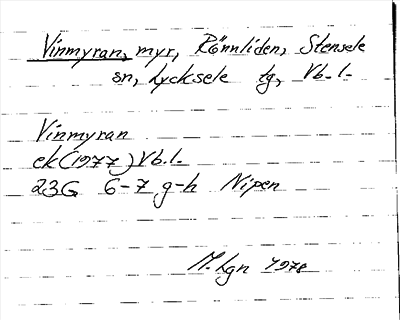 Vinmyran, myr, Rönnliden, Stensele
sn, Lycksele tg, Vb. l.
Vinmyran
ek (1977) Vb. l.
23G 6-7 g-h Nipen
M. Lgn 1978